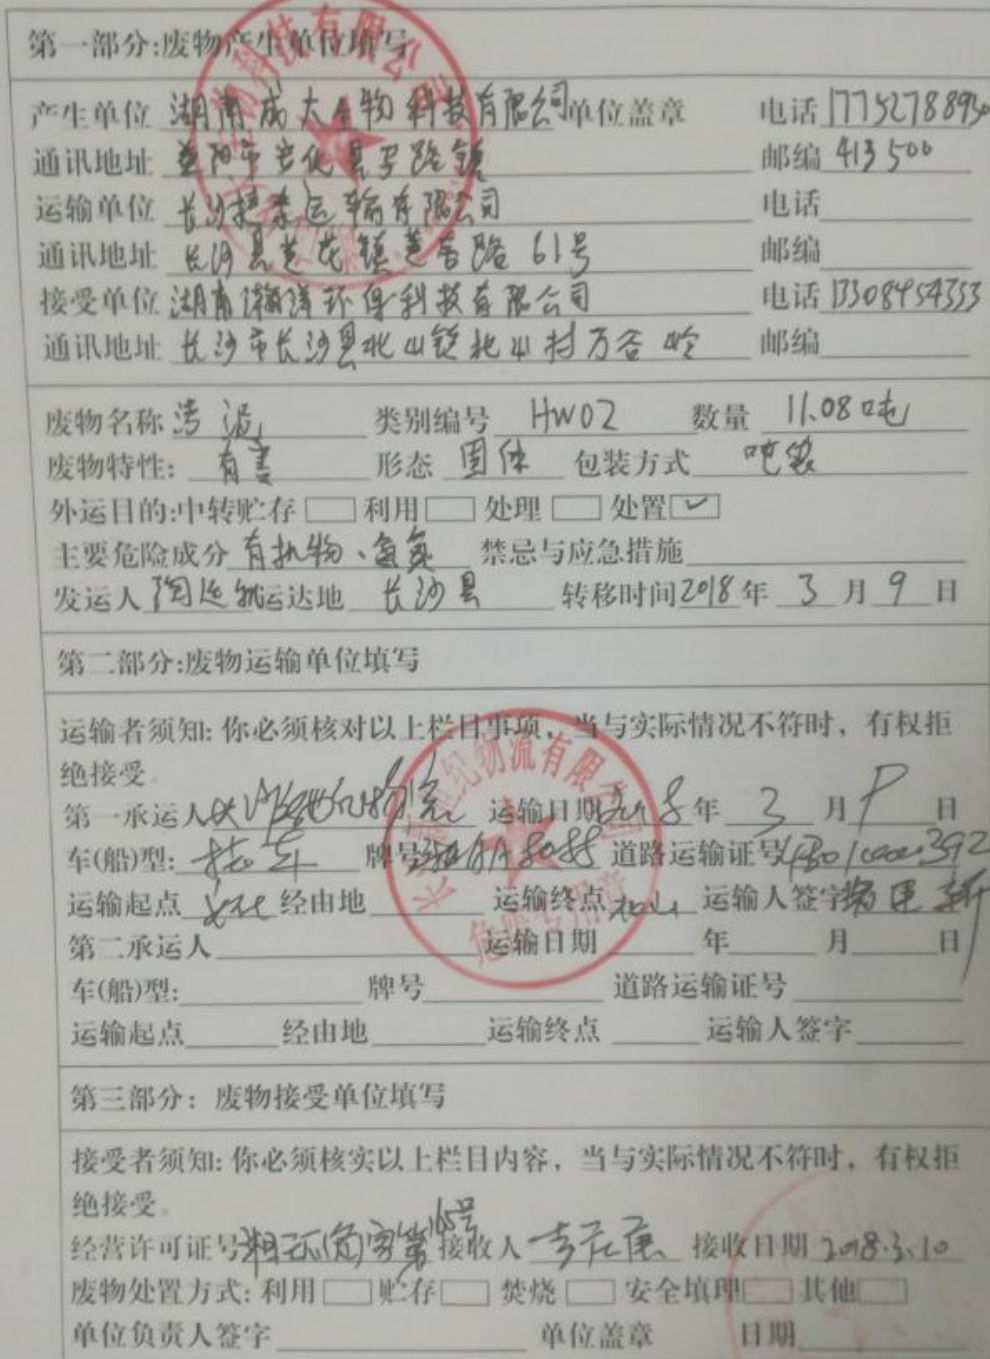 第一部分:废物产生单位填写
产生单位 湖南成大生物科技有限公司 单位盖章 电话 17752788930
通讯地址 益阳市安化县马路镇 邮编 413500
运输单位 长沙捷泰运输有限公司 电话
通讯地址 长沙县黄花镇黄谷路61号 邮编
接受单位 湖南瀚洋环保科技有限公司 电话 13308454353
通讯地址 长沙市长沙县北山镇北山村万谷岭 邮编
废物名称 污泥 类别编号 HW02 数量 11.08吨
废物特性: 有害 形态 固体 包装方式 吨袋
外运目的:中转贮存 利用 处理 处置 ✓
主要危险成分 有机物、氨氮 禁忌与应急措施
发运人 运达地 长沙县 转移时间 2018 年 3 月 9 日
第二部分:废物运输单位填写
运输者须知: 你必须核对以上栏目事项，当与实际情况不符时，有权拒
绝接受。
第一承运人 运输日期 2018 年 3 月 9 日
车(船)型: 牌号 道路运输证号
运输起点 经由地 运输终点 北山 运输人签字
第二承运人 运输日期 年 月 日
车(船)型: 牌号 道路运输证号
运输起点 经由地 运输终点 运输人签字
第三部分: 废物接受单位填写
接受者须知: 你必须核实以上栏目内容，当与实际情况不符时，有权拒
绝接受。
经营许可证号 湘环(危)字第165号 接收人 接收日期 2018.3.10
废物处置方式: 利用 贮存 焚烧 安全填埋 其他
单位负责人签字 单位盖章 日期